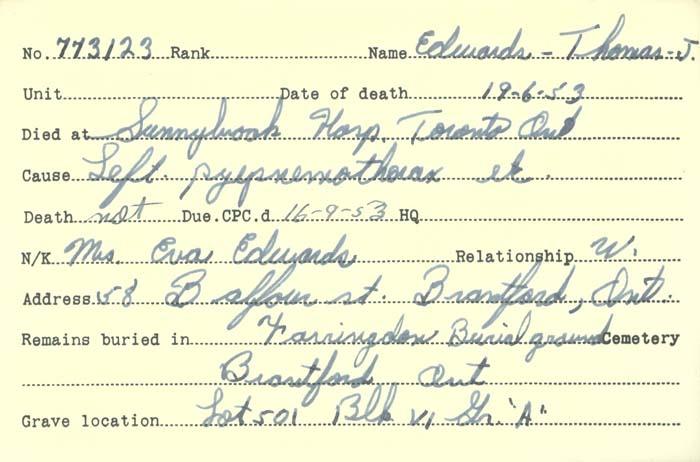 No. 773123 Rank Name Edwards - Thomas - J.
Unit Date of death 19-6-53
Died at Sunnybrook Hosp. Toronto Ont
Cause Left pyopnemothorax etc.
Death not Due. CPC.d 16-9-53 HQ
N/K Mrs. Eva Edwards Relationship W.
Address 58 Balfour st. Brantford, Ont.
Remains buried in Farringdon Burial ground Cemetery
Brantford Ont
Grave location Lot 501 Blk VI Gr. "A"